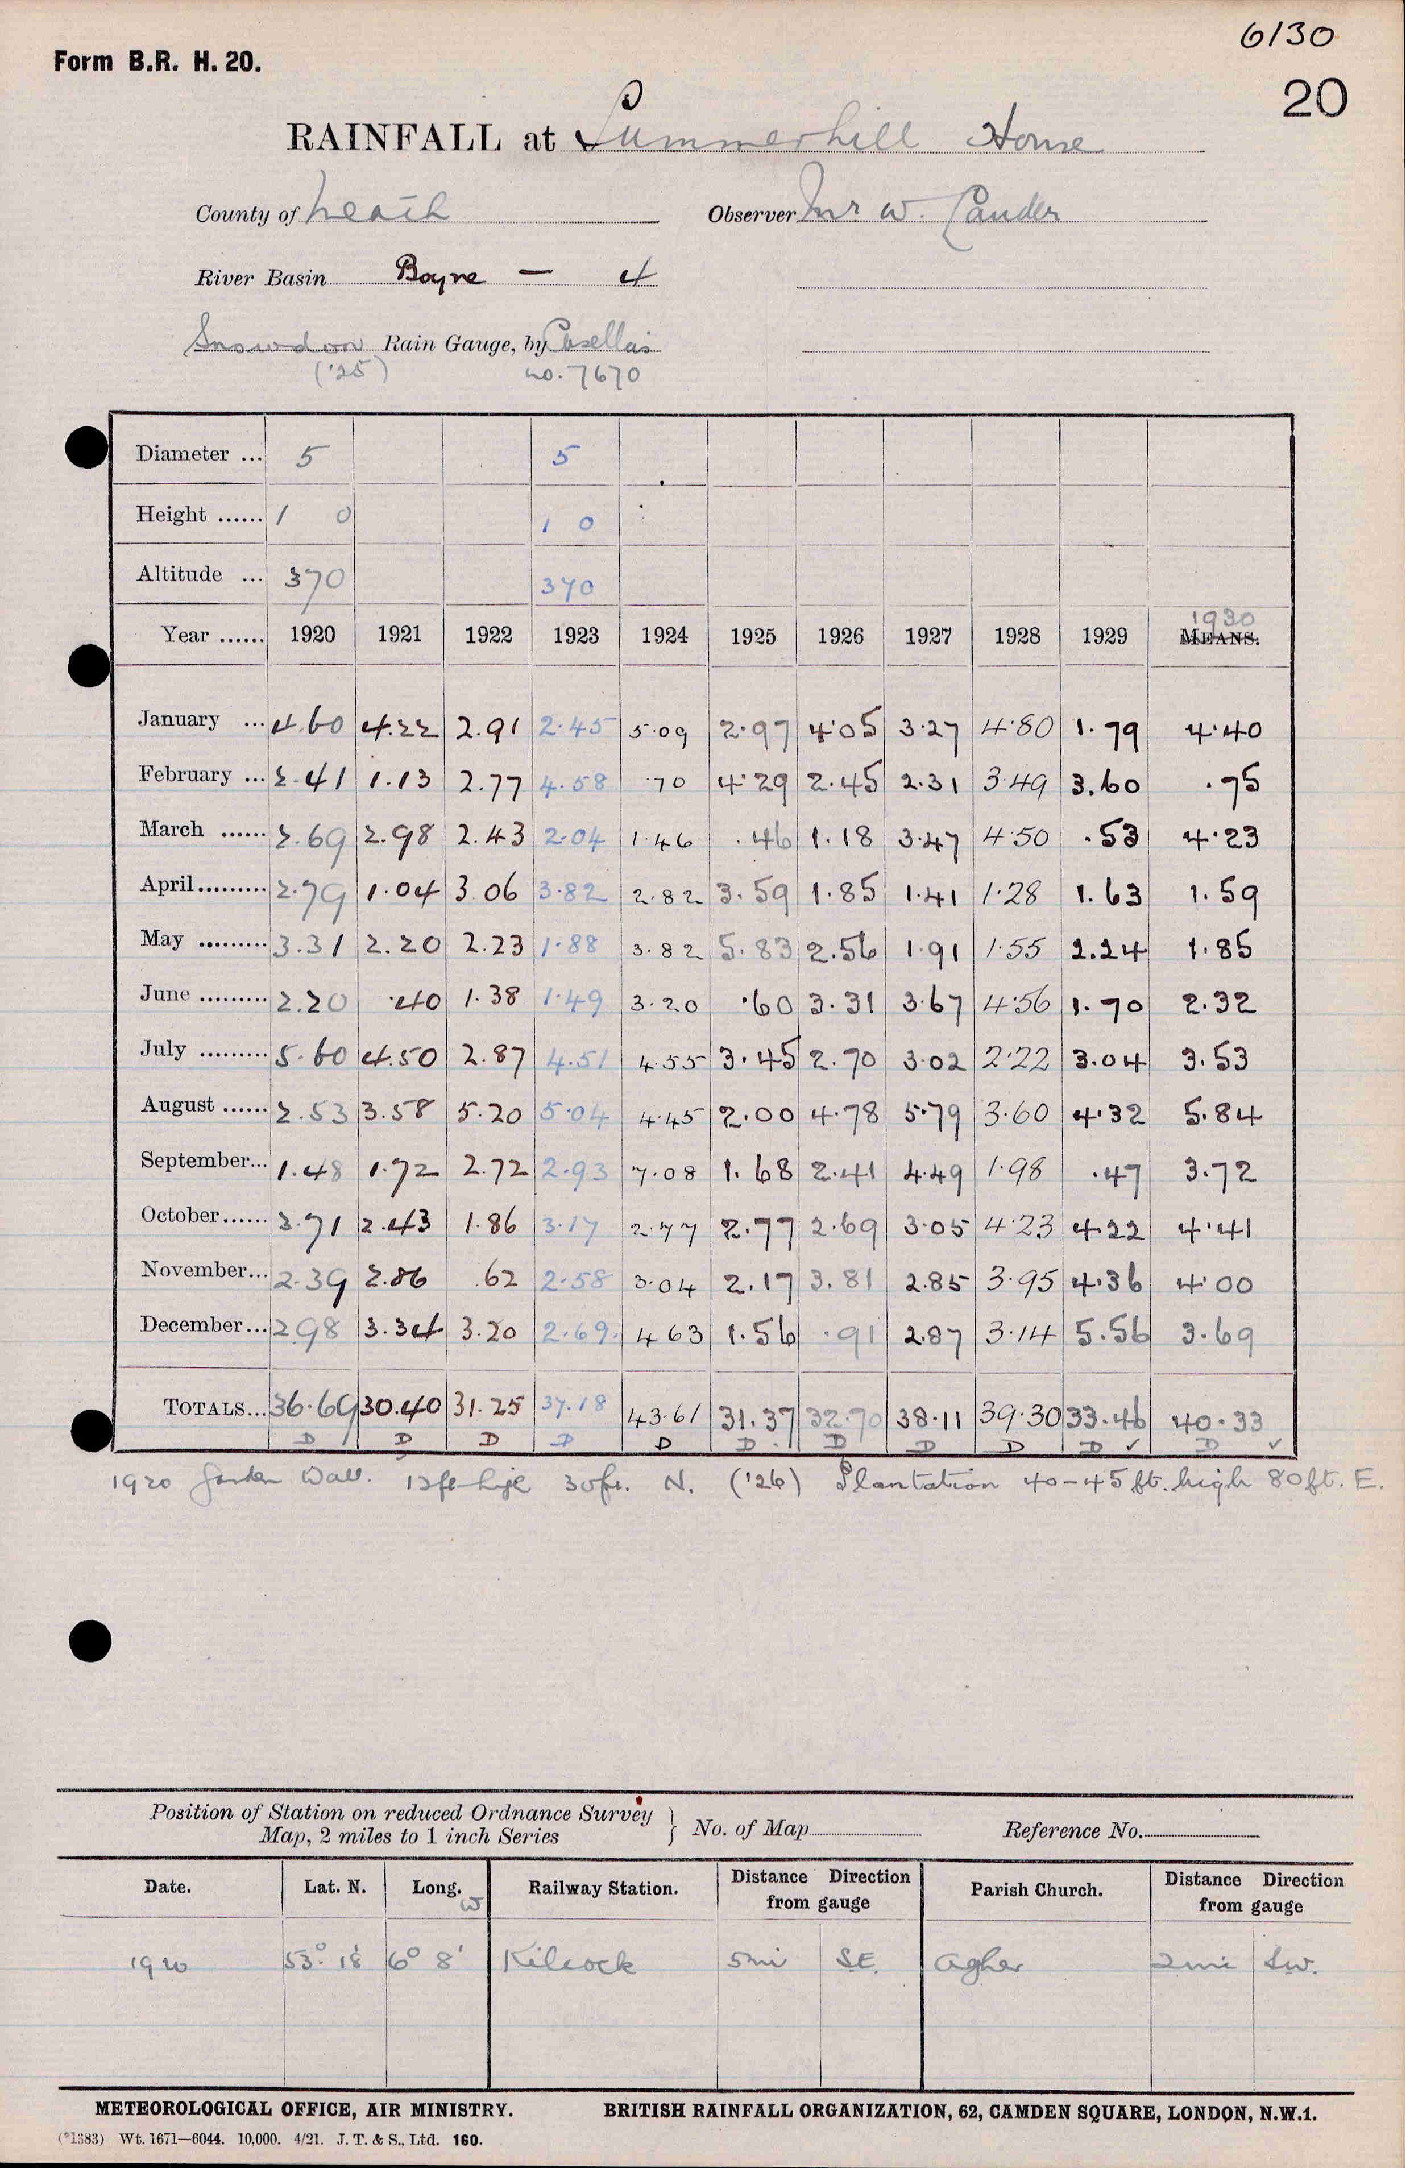 6130
Form B.R. H. 20.
20
RAINFALL at Summerhill House
County of Meath Observer Mr W. Lauder
River Basin Boyne — 4
Snowdon Rain Gauge, by Casella's
('25) No. 7670
Diameter ... 5 5
Height ...... 1 0 1 0
Altitude ... 370 370
1930
Year ...... 1920 1921 1922 1923 1924 1925 1926 1927 1928 1929 MEANS.
January ... 4.60 4.22 2.91 2.45 5.09 2.97 4.05 3.27 4.80 1.79 4.40
February ... 2.41 1.13 2.77 4.58 .70 4.29 2.45 2.31 3.49 3.60 .75
March ...... 2.69 2.98 2.43 2.04 1.46 .46 1.18 3.47 4.50 .53 4.23
April ......... 2.79 1.04 3.06 3.82 2.82 3.59 1.85 1.41 1.28 1.63 1.59
May ......... 3.31 2.20 2.23 1.88 3.82 5.83 2.56 1.91 1.55 2.24 1.85
June ......... 2.20 .40 1.38 1.49 3.20 .60 3.31 3.67 4.56 1.70 2.32
July ......... 5.60 4.50 2.87 4.51 4.55 3.45 2.70 3.02 2.22 3.04 3.53
August ...... 2.53 3.58 5.20 5.04 4.45 2.00 4.78 5.79 3.60 4.32 5.84
September... 1.48 1.72 2.72 2.93 7.08 1.68 2.41 4.49 1.98 .47 3.72
October...... 3.71 2.43 1.86 3.17 2.77 2.77 2.69 3.05 4.23 4.22 4.41
November... 2.39 2.86 .62 2.58 3.04 2.17 3.81 2.85 3.95 4.36 4.00
December... 2.98 3.34 3.20 2.69 4.63 1.56 .91 2.87 3.14 5.56 3.69
TOTALS... 36.69 30.40 31.25 37.18 43.61 31.37 32.70 38.11 39.30 33.46 40.33
D D D D D D D D D D ✓ D ✓
1920 Garden Wall. 12 ft high 30 ft. N. ('26) Plantation 40-45 ft. high 80 ft. E.
Position of Station on reduced Ordnance Survey Map, 2 miles to 1 inch Series } No. of Map Reference No.
Date. Lat. N. Long. W Railway Station. Distance Direction from gauge Parish Church. Distance Direction from gauge
1920 53° 18' 6° 8' Kilcock 5mi SE. Agher 2mi SW.
METEOROLOGICAL OFFICE, AIR MINISTRY. BRITISH RAINFALL ORGANIZATION, 62, CAMDEN SQUARE, LONDON, N.W.1.
(*1383) Wt. 1671—6044. 10,000. 4/21. J. T. & S., Ltd. 160.